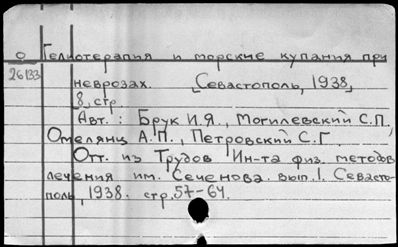 О Гелиотерапия и морские купания при
26133 неврозах. Севастополь, 1938,
8 стр.
Авт.: Брук И.Я., Могилевский С.П.,
Омелянц А.П., Петровский С.Г.
Отт. из Трудов Ин-та физ. методов
лечения им. Сеченова. вып. 1. Севасто-
поль, 1938. стр. 57-64.